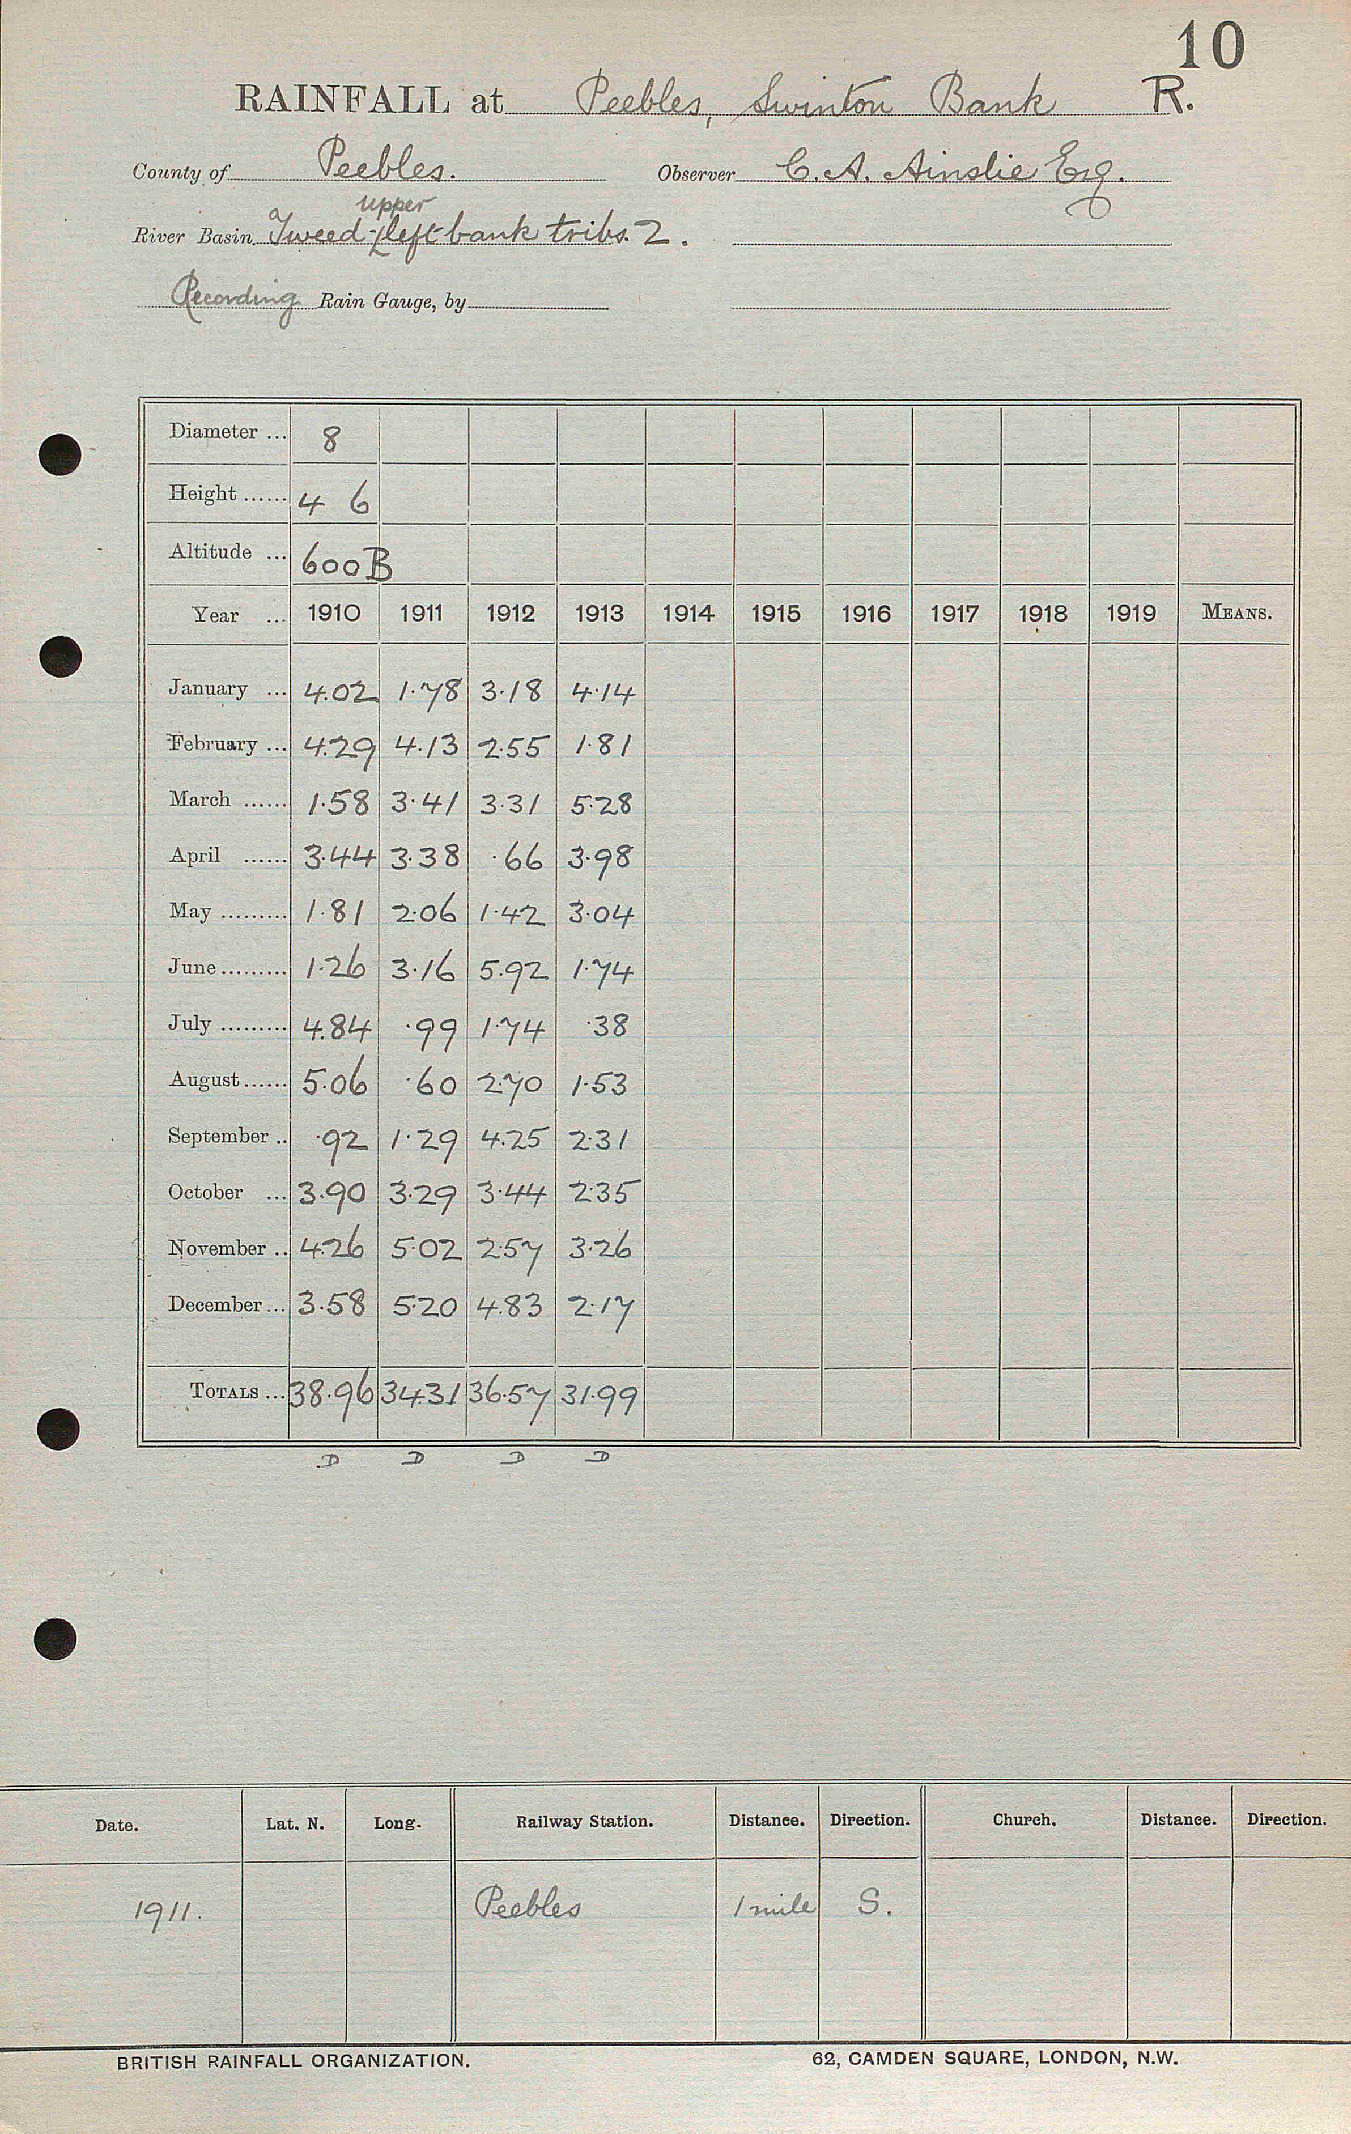 10
RAINFALL at Peebles, Swinton Bank R.
County of Peebles. Observer C. A. Ainslie Esq.
a upper
River Basin Tweed - left bank tribs. 2.
Recording Rain Gauge, by
Diameter ... 8
Height ...... 4 6
Altitude ... 600 B
Year ... 1910 1911 1912 1913 1914 1915 1916 1917 1918 1919 MEANS.
January ... 4.02 1.78 3.18 4.14
February ... 4.29 4.13 2.55 1.81
March ...... 1.58 3.41 3.31 5.28
April ...... 3.44 3.38 .66 3.98
May ......... 1.81 2.06 1.42 3.04
June ......... 1.26 3.16 5.92 1.74
July ......... 4.84 .99 1.74 .38
August ...... 5.06 .60 2.70 1.53
September .. .92 1.29 4.25 2.31
October ... 3.90 3.29 3.44 2.35
November .. 4.26 5.02 2.57 3.26
December ... 3.58 5.20 4.83 2.17
TOTALS ... 38.96 34.31 36.57 31.99
D D D D
Date. Lat. N. Long. Railway Station. Distance. Direction. Church. Distance. Direction.
1911. Peebles 1 mile S.
BRITISH RAINFALL ORGANIZATION. 62, CAMDEN SQUARE, LONDON, N.W.